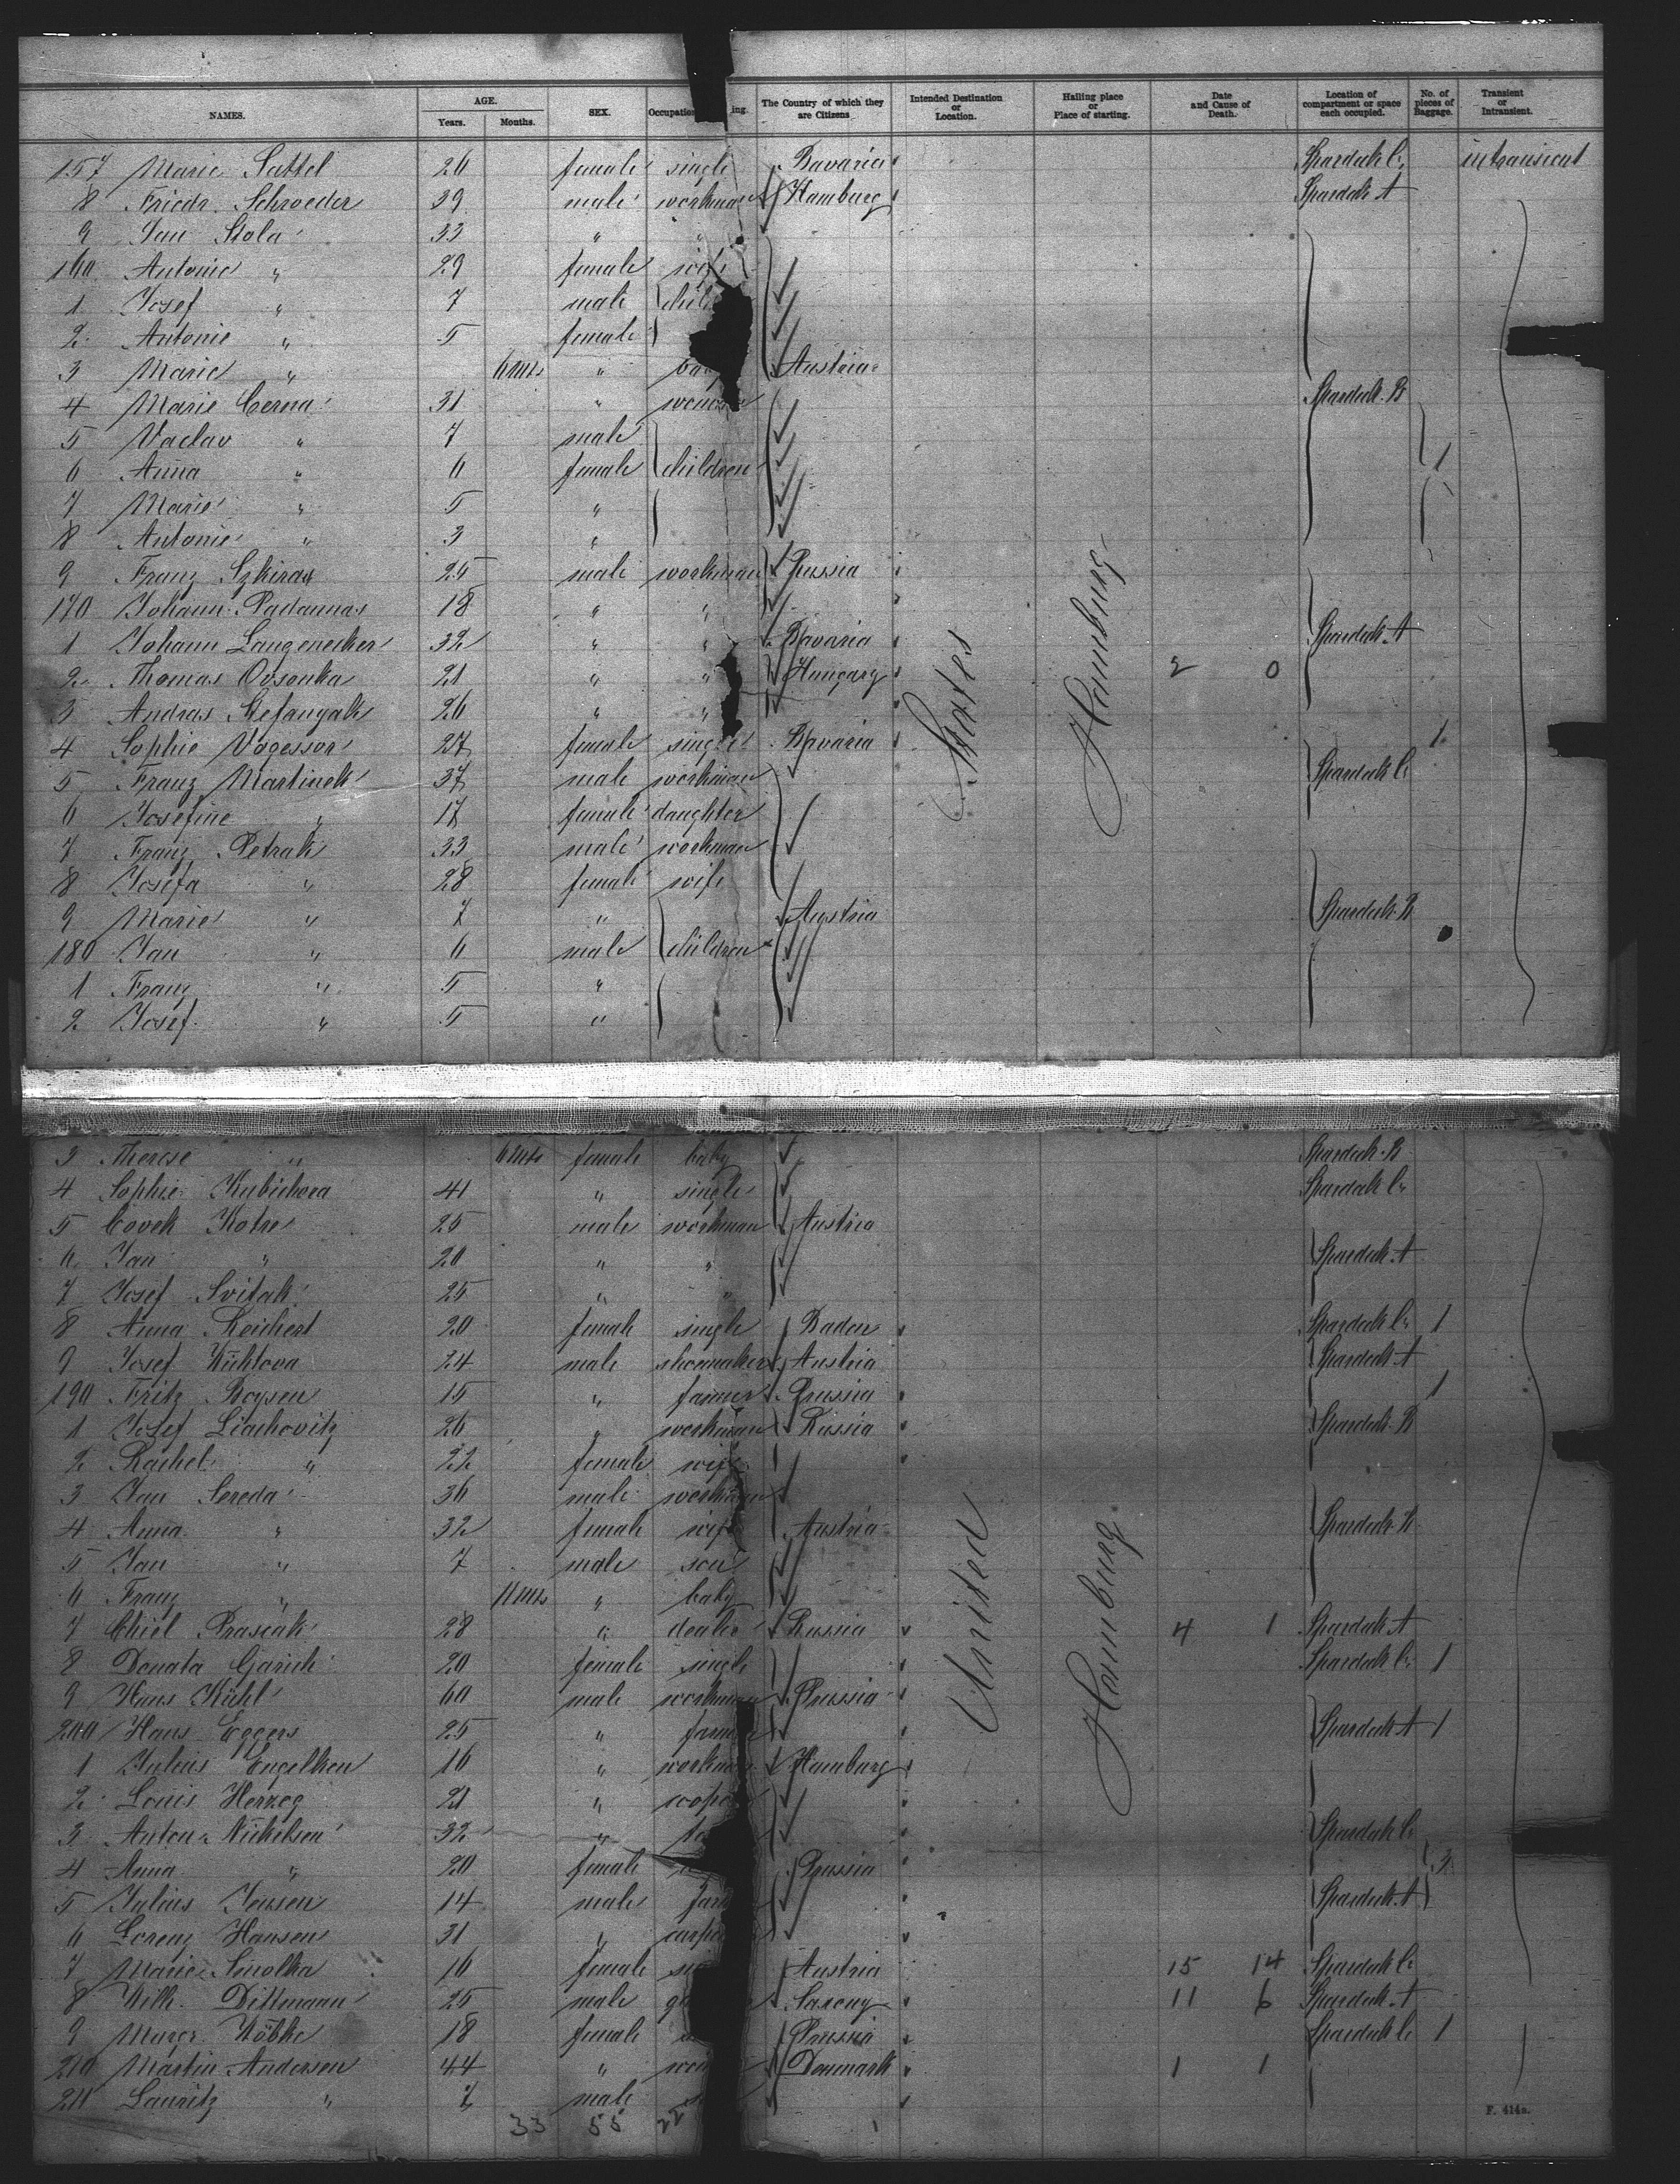 NAMES. AGE. Years. Months. SEX. Occupation ing. The Country of which they are Citizens Intended Destination or Location. Hailing place or Place of starting. Date and Cause of Death. Location of compartment or space each occupied. No. of pieces of Baggage. Transient or Intransient.
157 Marie Sattel 26 female single Bavaria Spardeck C. intransient
8 Friedr. Schroeder 39 male workman Hamburg Spardeck A
9 Jan Stola 33 " "
160 Antonie " 29 female wife
1 Josef " 7 male
2 Antonie " 5 female
3 Marie " 6 mts " baby Austria
4 Marie Cerna 31 " woman Spardeck B
5 Vaclav " 7 male
6 Anna " 6 female children 1
7 Marie " 5 "
8 Antonie " 3 "
9 Franz 25 male workman Russia
170 Johann Padamas 18 " "
1 Johann Langenecker 32 " " Bavaria Spardeck A
2 Thomas Ovsonka 21 " " Hungary 2 0
3 Andras Stefanyak 26 " "
4 Sophie Vogessor 27 female single Bavaria 1
5 Franz Martinek 37 male workman Spardeck C.
6 Josefine " 17 female daughter
7 Franz Petrak 33 male workman
8 Josefa " 28 female wife
9 Marie " 7 " Austria Spardeck B
180 Jan " 6 male children
1 Franz " 5 "
2 Josef " 5 "
States
Hamburg
3 Therese " 6 mts female baby Spardeck B
4 Sophie Kubichova 41 " single Spardeck C.
5 Covek Kotre 25 male workman Austria
6 Jan " 20 " " Spardeck A
7 Josef Svitak 25 " "
8 Anna Reichert 20 female single Baden Spardeck C. 1
9 Josef Kuhtova 24 male shoemaker Austria Spardeck A
190 Fritz Boysen 15 " farmer Prussia 1
1 Josef Liachovitz 26 " workman Russia Spardeck B
2 Rachel " 22 female wife
3 Jan Sereda 36 male workman
4 Anna " 32 female wife Austria Spardeck B
5 Jan " 7 male son
6 Franz " 11 mts " baby
7 Chiel Prasiak 28 " dealer Russia 4 1 Spardeck A
8 Donata Garich 20 female single Spardeck C. 1
9 Hans Kühl 60 male workman Prussia
200 Hans Eggers 25 " farmer Spardeck A 1
1 Julius Engelken 16 " workman Hamburg
2 Louis Herzog 21 "
3 Anton Nickelsen 32 " Spardeck C.
4 Anna " 20 female Prussia 3
5 Julius Jensen 14 male Spardeck A
6 Lorenz Hansen 31 "
7 Marie Smolka 16 female Austria 15 14 Spardeck C.
8 Wilh. Dittmann 25 male Saxony 11 6 Spardeck A
9 Margr. Köbke 18 female Prussia Spardeck C. 1
210 Martin Andersen 44 " Denmark 1 1
211 Lauritz " 7 male
33 55 22
United
Hamburg
F. 414a.